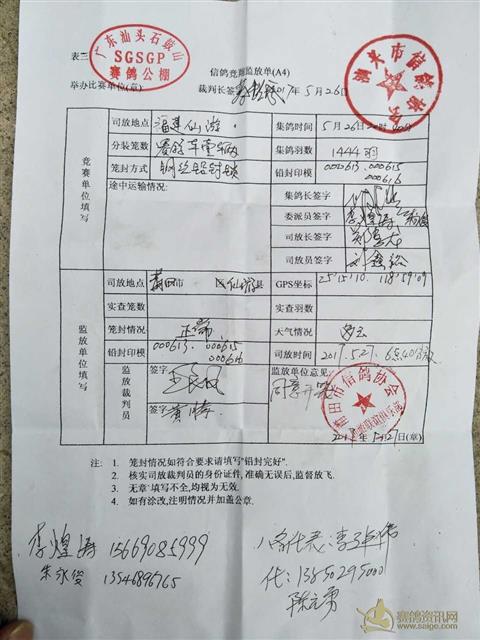 广东汕头石鼓山
SGSGP
赛鸽公棚
汕头市信鸽协会
表三
信鸽竞翔监放单(A4)
举办比赛单位(章): 裁判长签字 2017年5月26日
竞赛单位填写
司放地点 福建仙游 集鸽时间 5月26日
分装笼数 集鸽羽数 1444羽
笼封方式 铅封印模 000613.000615
000616
途中运输情况: 集鸽长签字
委派员签字 李煌涛
司放长签字
司放员签字
监放单位填写
司放地点 莆田市 仙游县 GPS坐标 25°15'10. 118°59'09
实查笼数 实查羽数
笼封情况 正常 天气情况 多云
铅封印模 000613.000615 司放时间 2017.5.27.6点40分
000616
监放裁判员 签字 监放单位意见:
同意开笼
签字
莆田市信鸽协会
2017年5月27日(章)
注: 1. 笼封情况如符合要求请填写"铅封完好".
2. 核实司放裁判员的身份证件,准确无误后,监督放飞.
3. 无章 填写不全,均视为无效.
4. 如有涂改,注明情况并加盖公章.
李煌涛 15669085999
朱永俊 13546896765
代:13850295000
陈元勇
赛鸽资讯网
www.saige.com